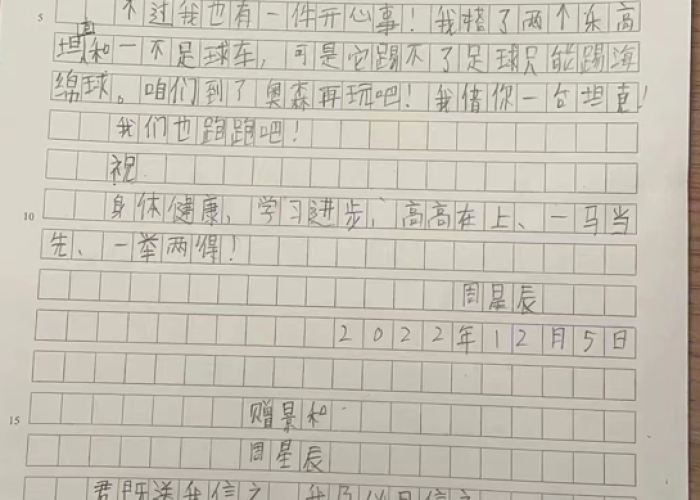 不过我也有一件开心事！我搭了两个乐高
坦克和一不足球车，可是它踢不了足球只能踢海
绵球。咱们到了奥森再玩吧！我借你一台坦克！
我们也跑跑吧！
祝
10 身体健康、学习进步、高高在上、一马当
先、一举两得！
周星辰
2022年12月5日
15 赠景和
周星辰
君既送我信之，我乃必回信之